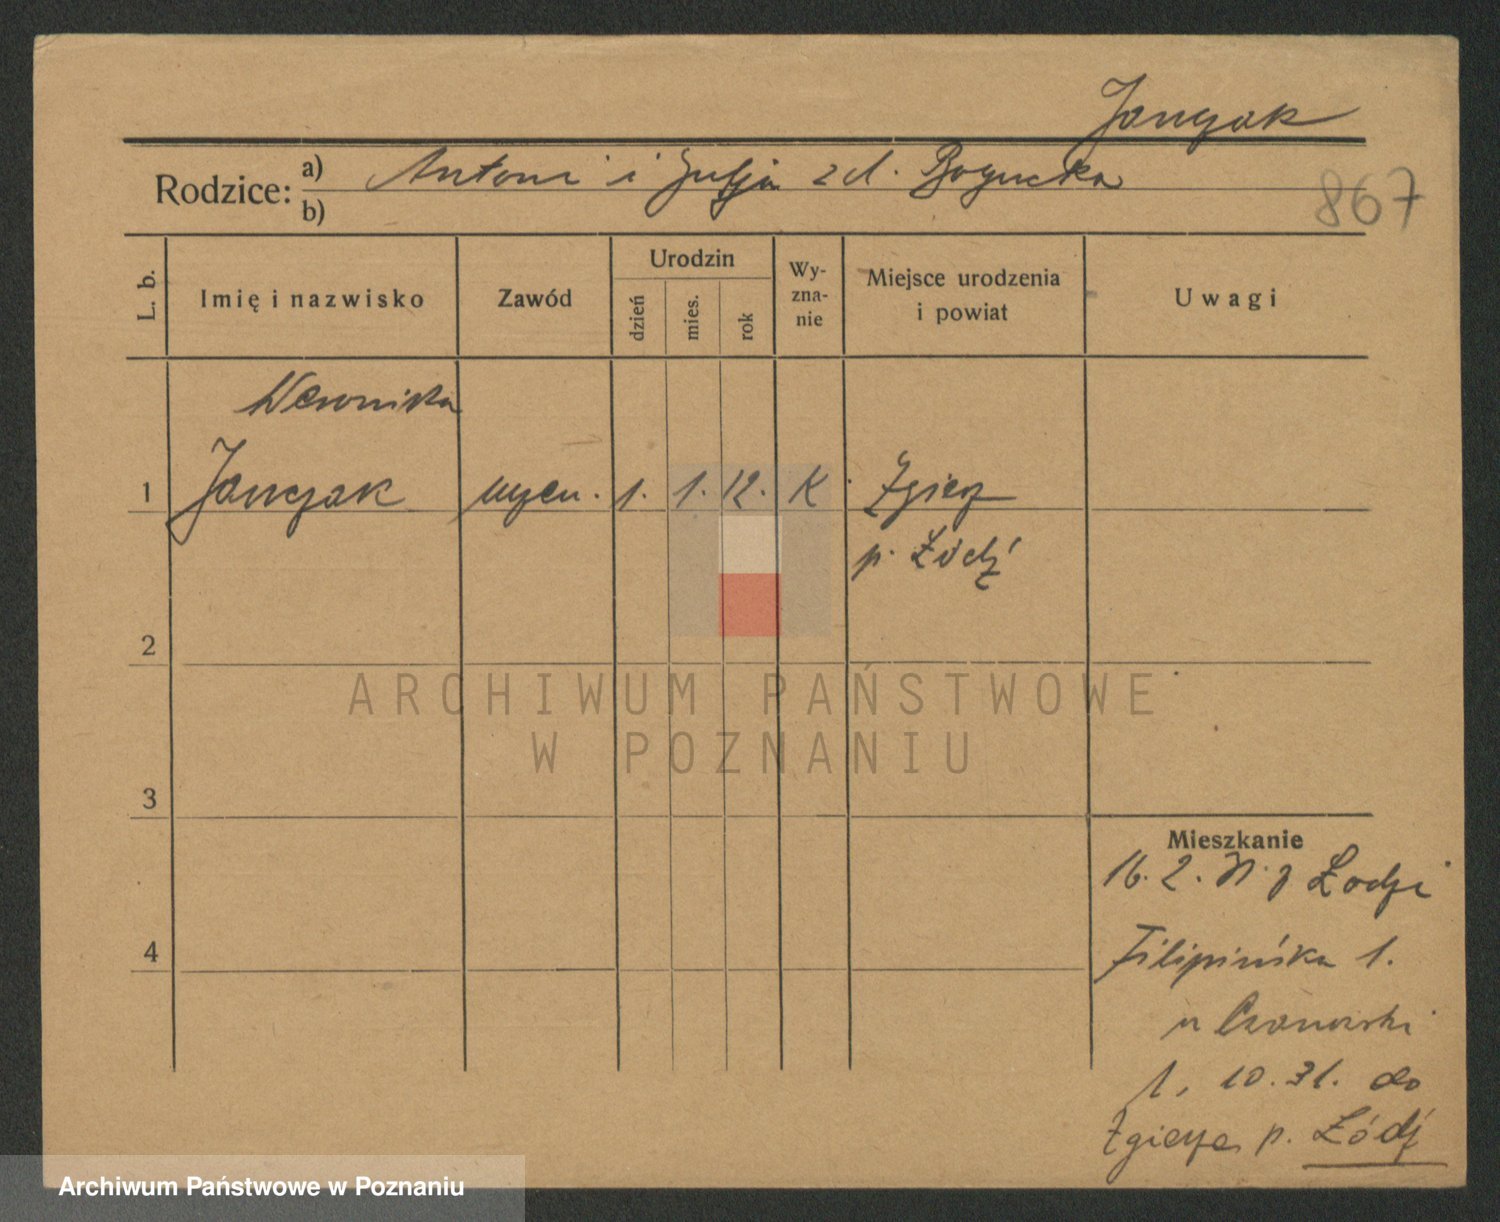 Janczak
Rodzice: a) Antoni i Julja z d. Bogucka
b)
867
L. b.
Imię i nazwisko
Zawód
Urodzin
dzień
mies.
rok
Wy-
zna-
nie
Miejsce urodzenia
i powiat
Uwagi
Weronika
1 Janczak uczen. 1. 1. 12. K. Zgierz
p. Łódź
2
3
4
ARCHIWUM PAŃSTWOWE
W POZNANIU
Mieszkanie
16. 2. z Łodzi
Filipińska 1.
1. 10. 31. do
Zgierza p. Łódź
Archiwum Państwowe w Poznaniu